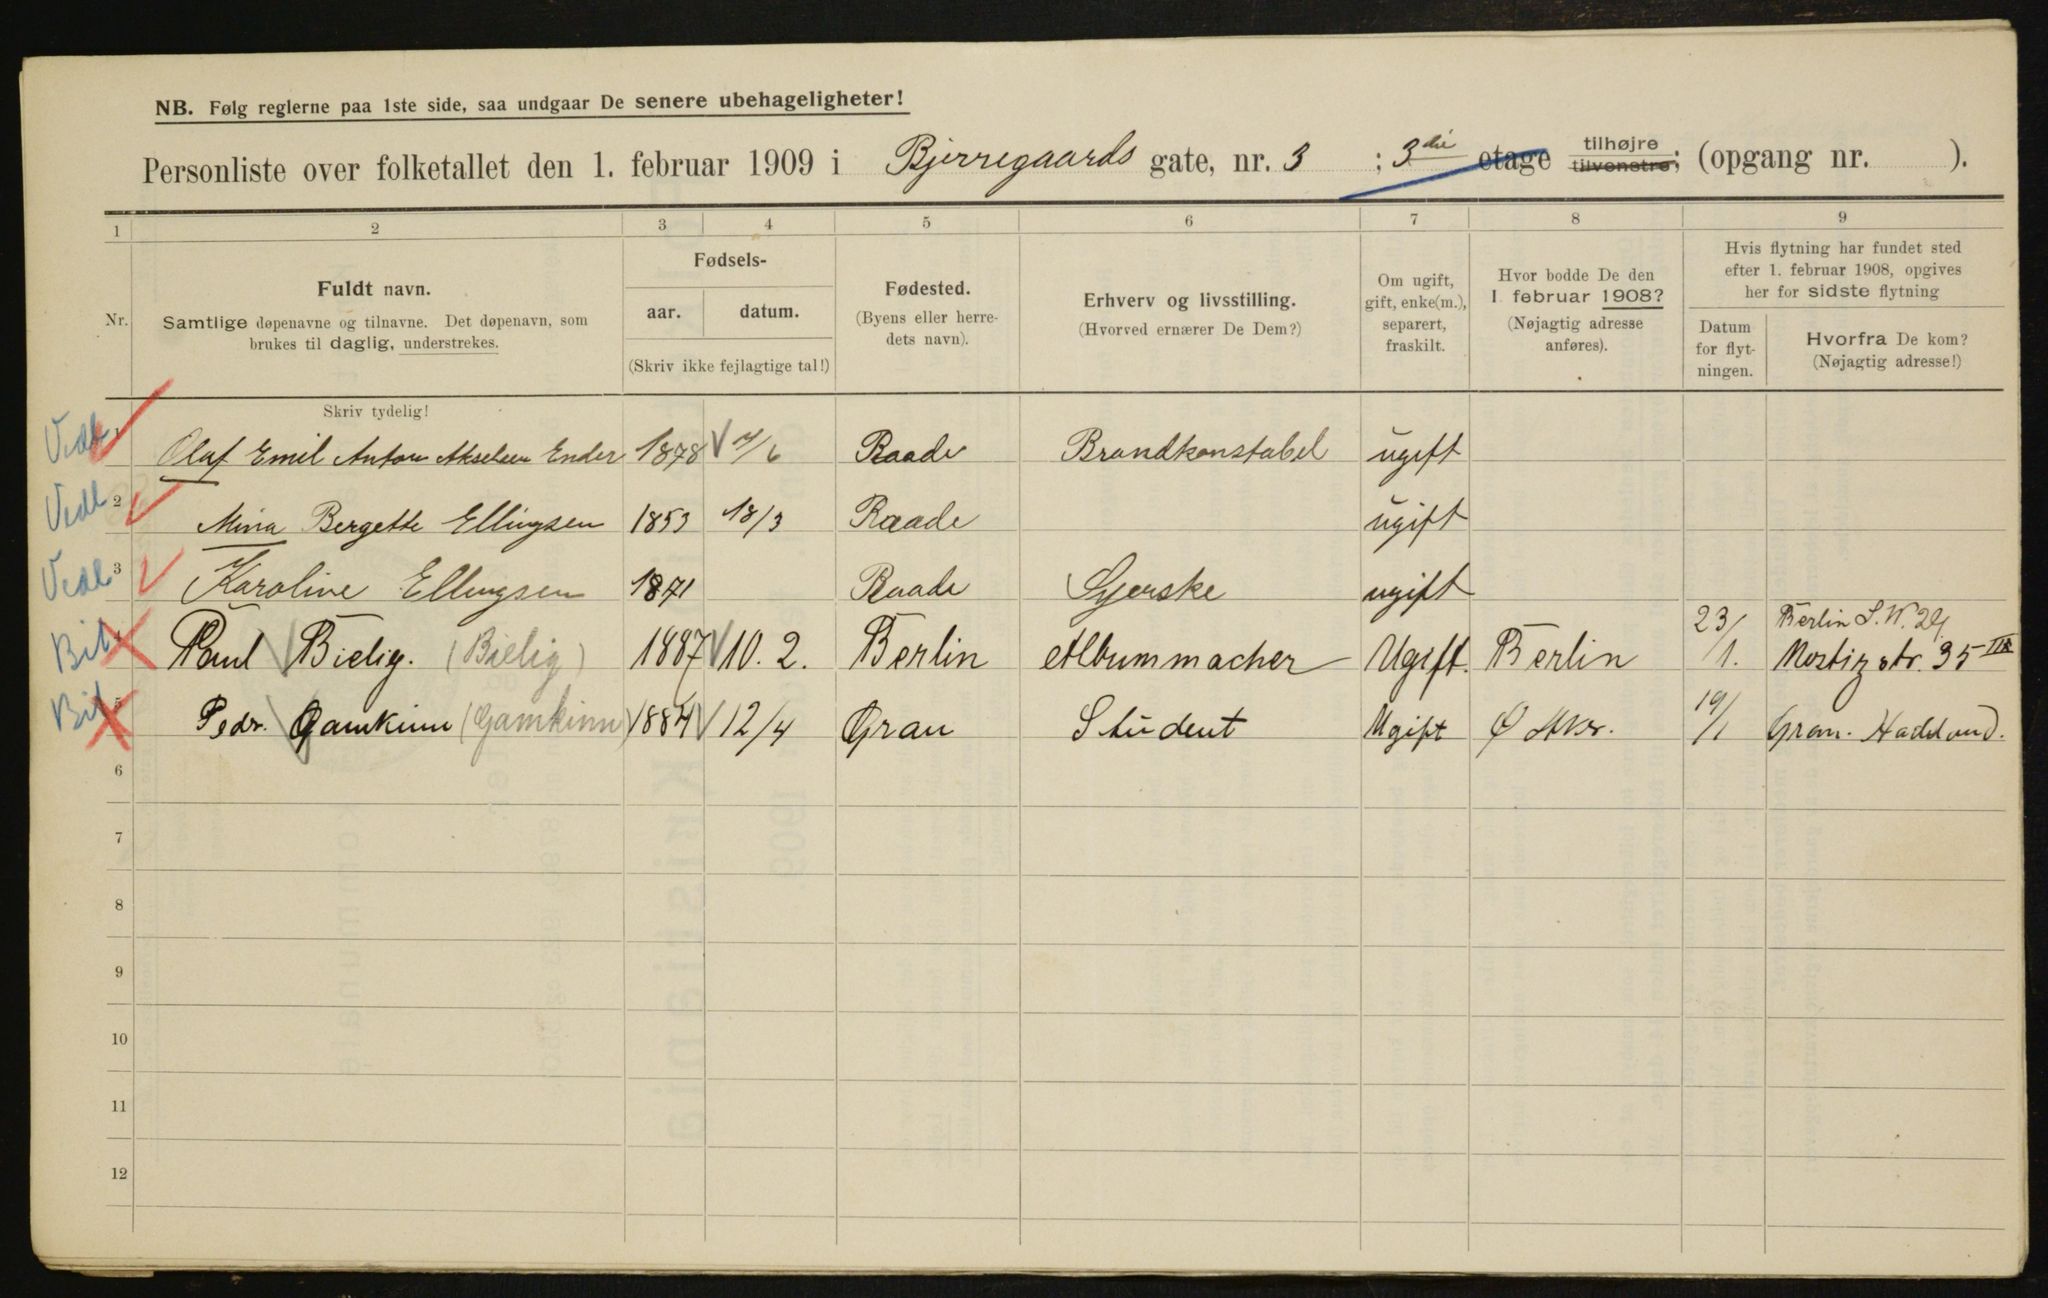 NB. Følg reglerne paa 1ste side, saa undgaar De senere ubehageligheter!
Personliste over folketallet den 1. februar 1909 i Bjerregaards gate, nr. 3 ; 3die etage tilhøjre tilvenstre; (opgang nr. ).
1 2 3 4 5 6 7 8 9
Nr.
Fuldt navn.
Samtlige døpenavne og tilnavne. Det døpenavn, som
brukes til daglig, understrekes.
Fødsels-
aar. datum.
(Skriv ikke fejlagtige tal!)
Fødested.
(Byens eller herre-
dets navn).
Erhverv og livsstilling.
(Hvorved ernærer De Dem?)
Om ugift,
gift, enke(m.),
separert,
fraskilt.
Hvor bodde De den
1. februar 1908?
(Nøjagtig adresse
anføres).
Hvis flytning har fundet sted
efter 1. februar 1908, opgives
her for sidste flytning
Datum
for flyt-
ningen.
Hvorfra De kom?
(Nøjagtig adresse!)
Skriv tydelig!
1 Olaf Emil Anton Akselsen Ender 1878 7/6 Raade Brandkonstabel ugift
Vedl 2 Mina Bergette Ellingsen 1853 18/3 Raade ugift
Vedl 3 Karoline Ellingsen 1871 Raade Syerske ugift
Bil 4 Paul Bielig. (Bielig) 1887 10. 2. Berlin Albummacher Ugift. Berlin 23/1. Berlin S.W. 29.
Nostizstr. 35 III
Bil 5 Pedr. Gamkinn (Gamkinn) 1884 12/4 Gran Student Ugift 19/1 Gran. Hadeland.
6
7
8
9
10
11
12